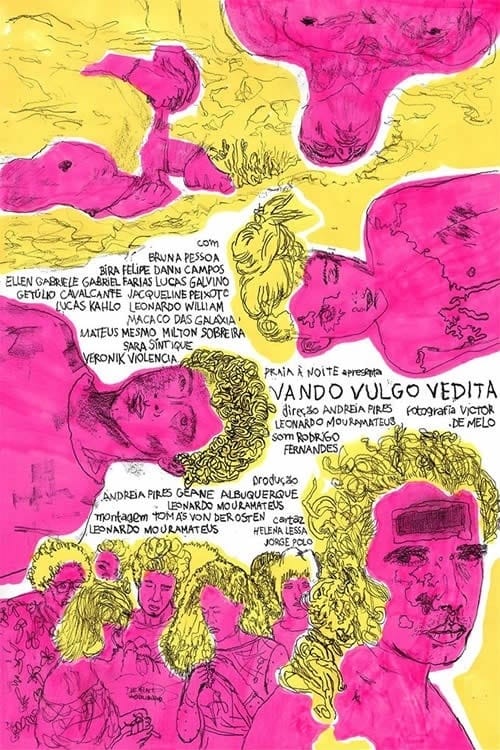 com
BRUNA PESSOA
BIRA FELIPE DANN CAMPOS
ELLEN GABRIELE GABRIEL FARIAS LUCAS GALVINO
GETÚLIO CAVALCANTE JACQUELINE PEIXOTE
LUCAS KAHLO LEONARDO WILLIAM
MACACO DAS GALÁXIA
MATEUS MESMO MILTON SOBREIRA
SARA SÍNTIQUE
VERONIK VIOLENCIA
PRAIA À NOITE apresenta
VANDO VULGO VEDITA
direção ANDREIA PIRES
LEONARDO MOURAMATEUS
fotografia VICTOR
DE MELO
som RODRIGO
FERNANDES
produção
ANDREIA PIRES GEANE ALBUQUERQUE
LEONARDO MOURAMATEUS
montagem TOMÁS VON DER OSTEN
LEONARDO MOURAMATEUS
cartaz
HELENA LESSA
JORGE POLO